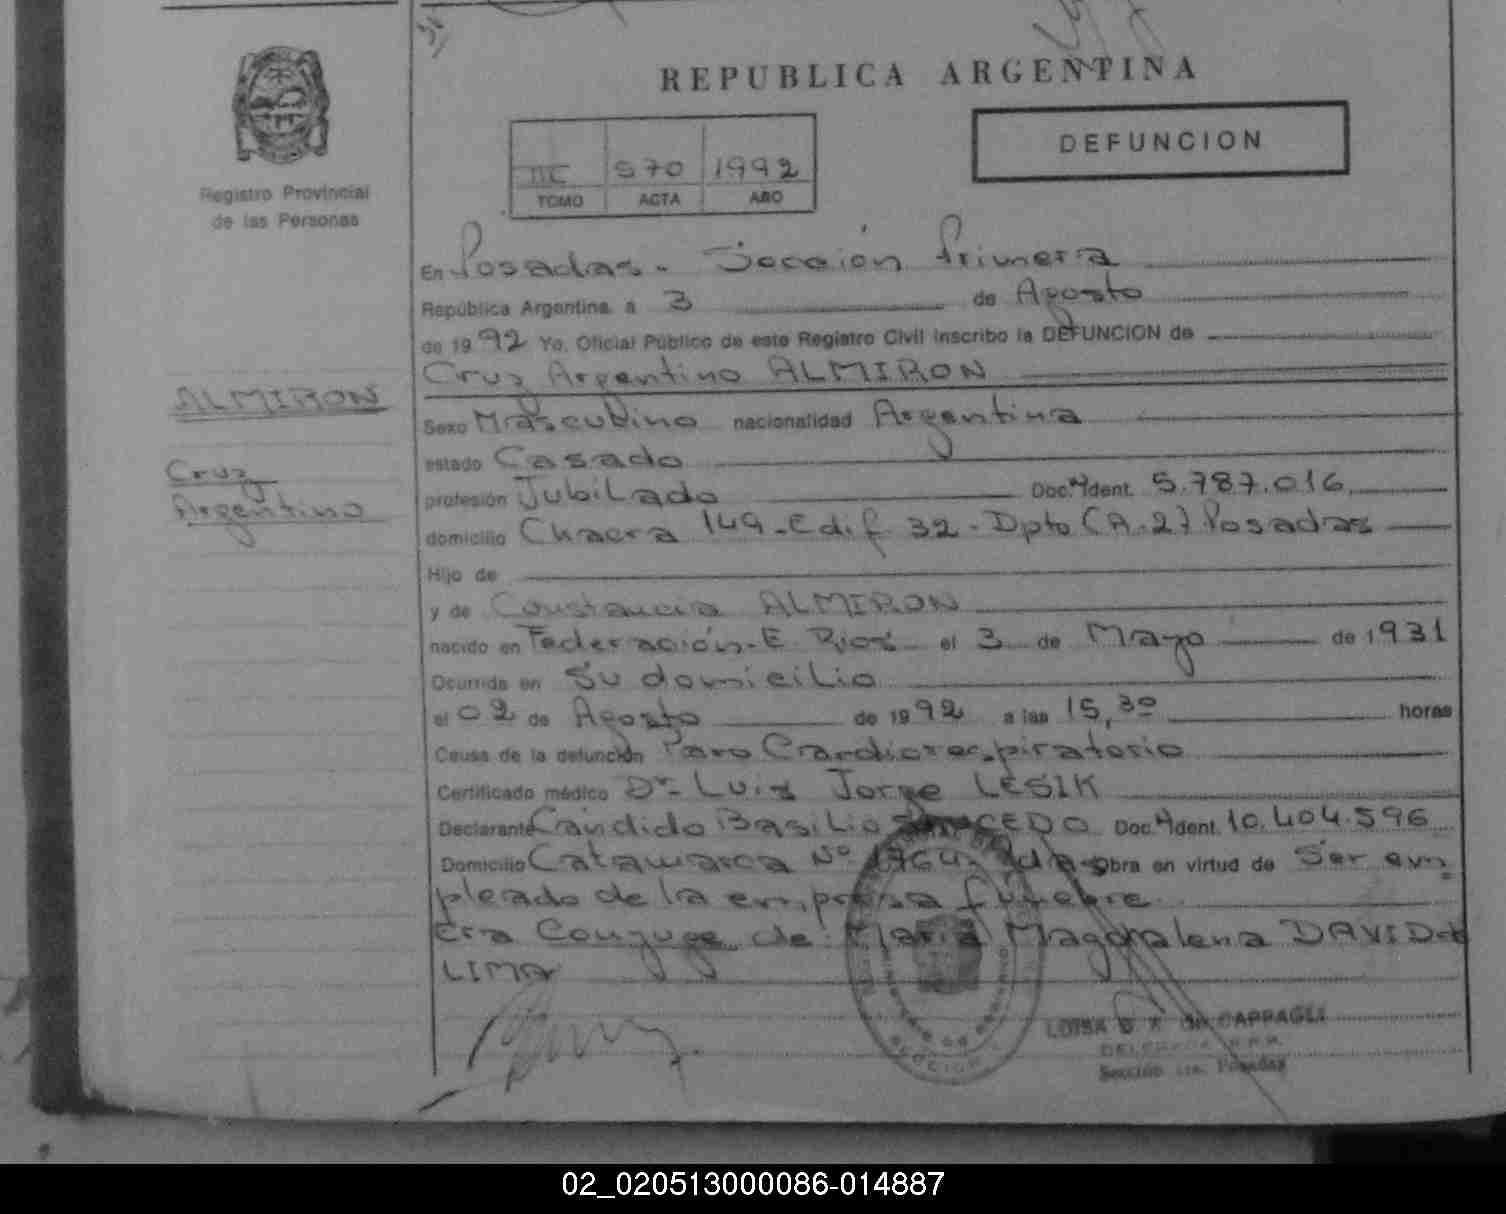 REPUBLICA ARGENTINA
DEFUNCION
Registro Provincial
de las Personas
III 570 1992
TOMO ACTA AÑO
En Posadas. Sección Primera
República Argentina, a 3 de Agosto
de 1992 Yo, Oficial Público de este Registro Civil inscribo la DEFUNCION de
Cruz Argentino ALMIRON
ALMIRON
Cruz
Argentino
Sexo Masculino nacionalidad Argentina
estado Casado
profesión Jubilado Doc. Ident. 5.787.016
domicilio Chacra 149-Edif 32-Dpto (A-2) Posadas
Hijo de
y de Constancia ALMIRON
nacido en Federación-E. Rios el 3 de Mayo de 1931
Ocurrida en Su domicilio
el 02 de Agosto de 1992 a las 15,30 horas
Causa de la defunción Paro Cardiorespiratorio
Certificado médico Dr. Luis Jorge LESIK
Declarante Cándido Basilio Doc. Ident. 10.404.596
Domicilio Catamarca Nº 1764 Obra en virtud de Ser em
pleado de la empresa fúnebre.
Era Conyuge de María Magdalena DAVID
LIMA
LUISA CAPPAGLI
DELEGADA R.P.P.
Sección 1ra. Posadas
02_020513000086-014887